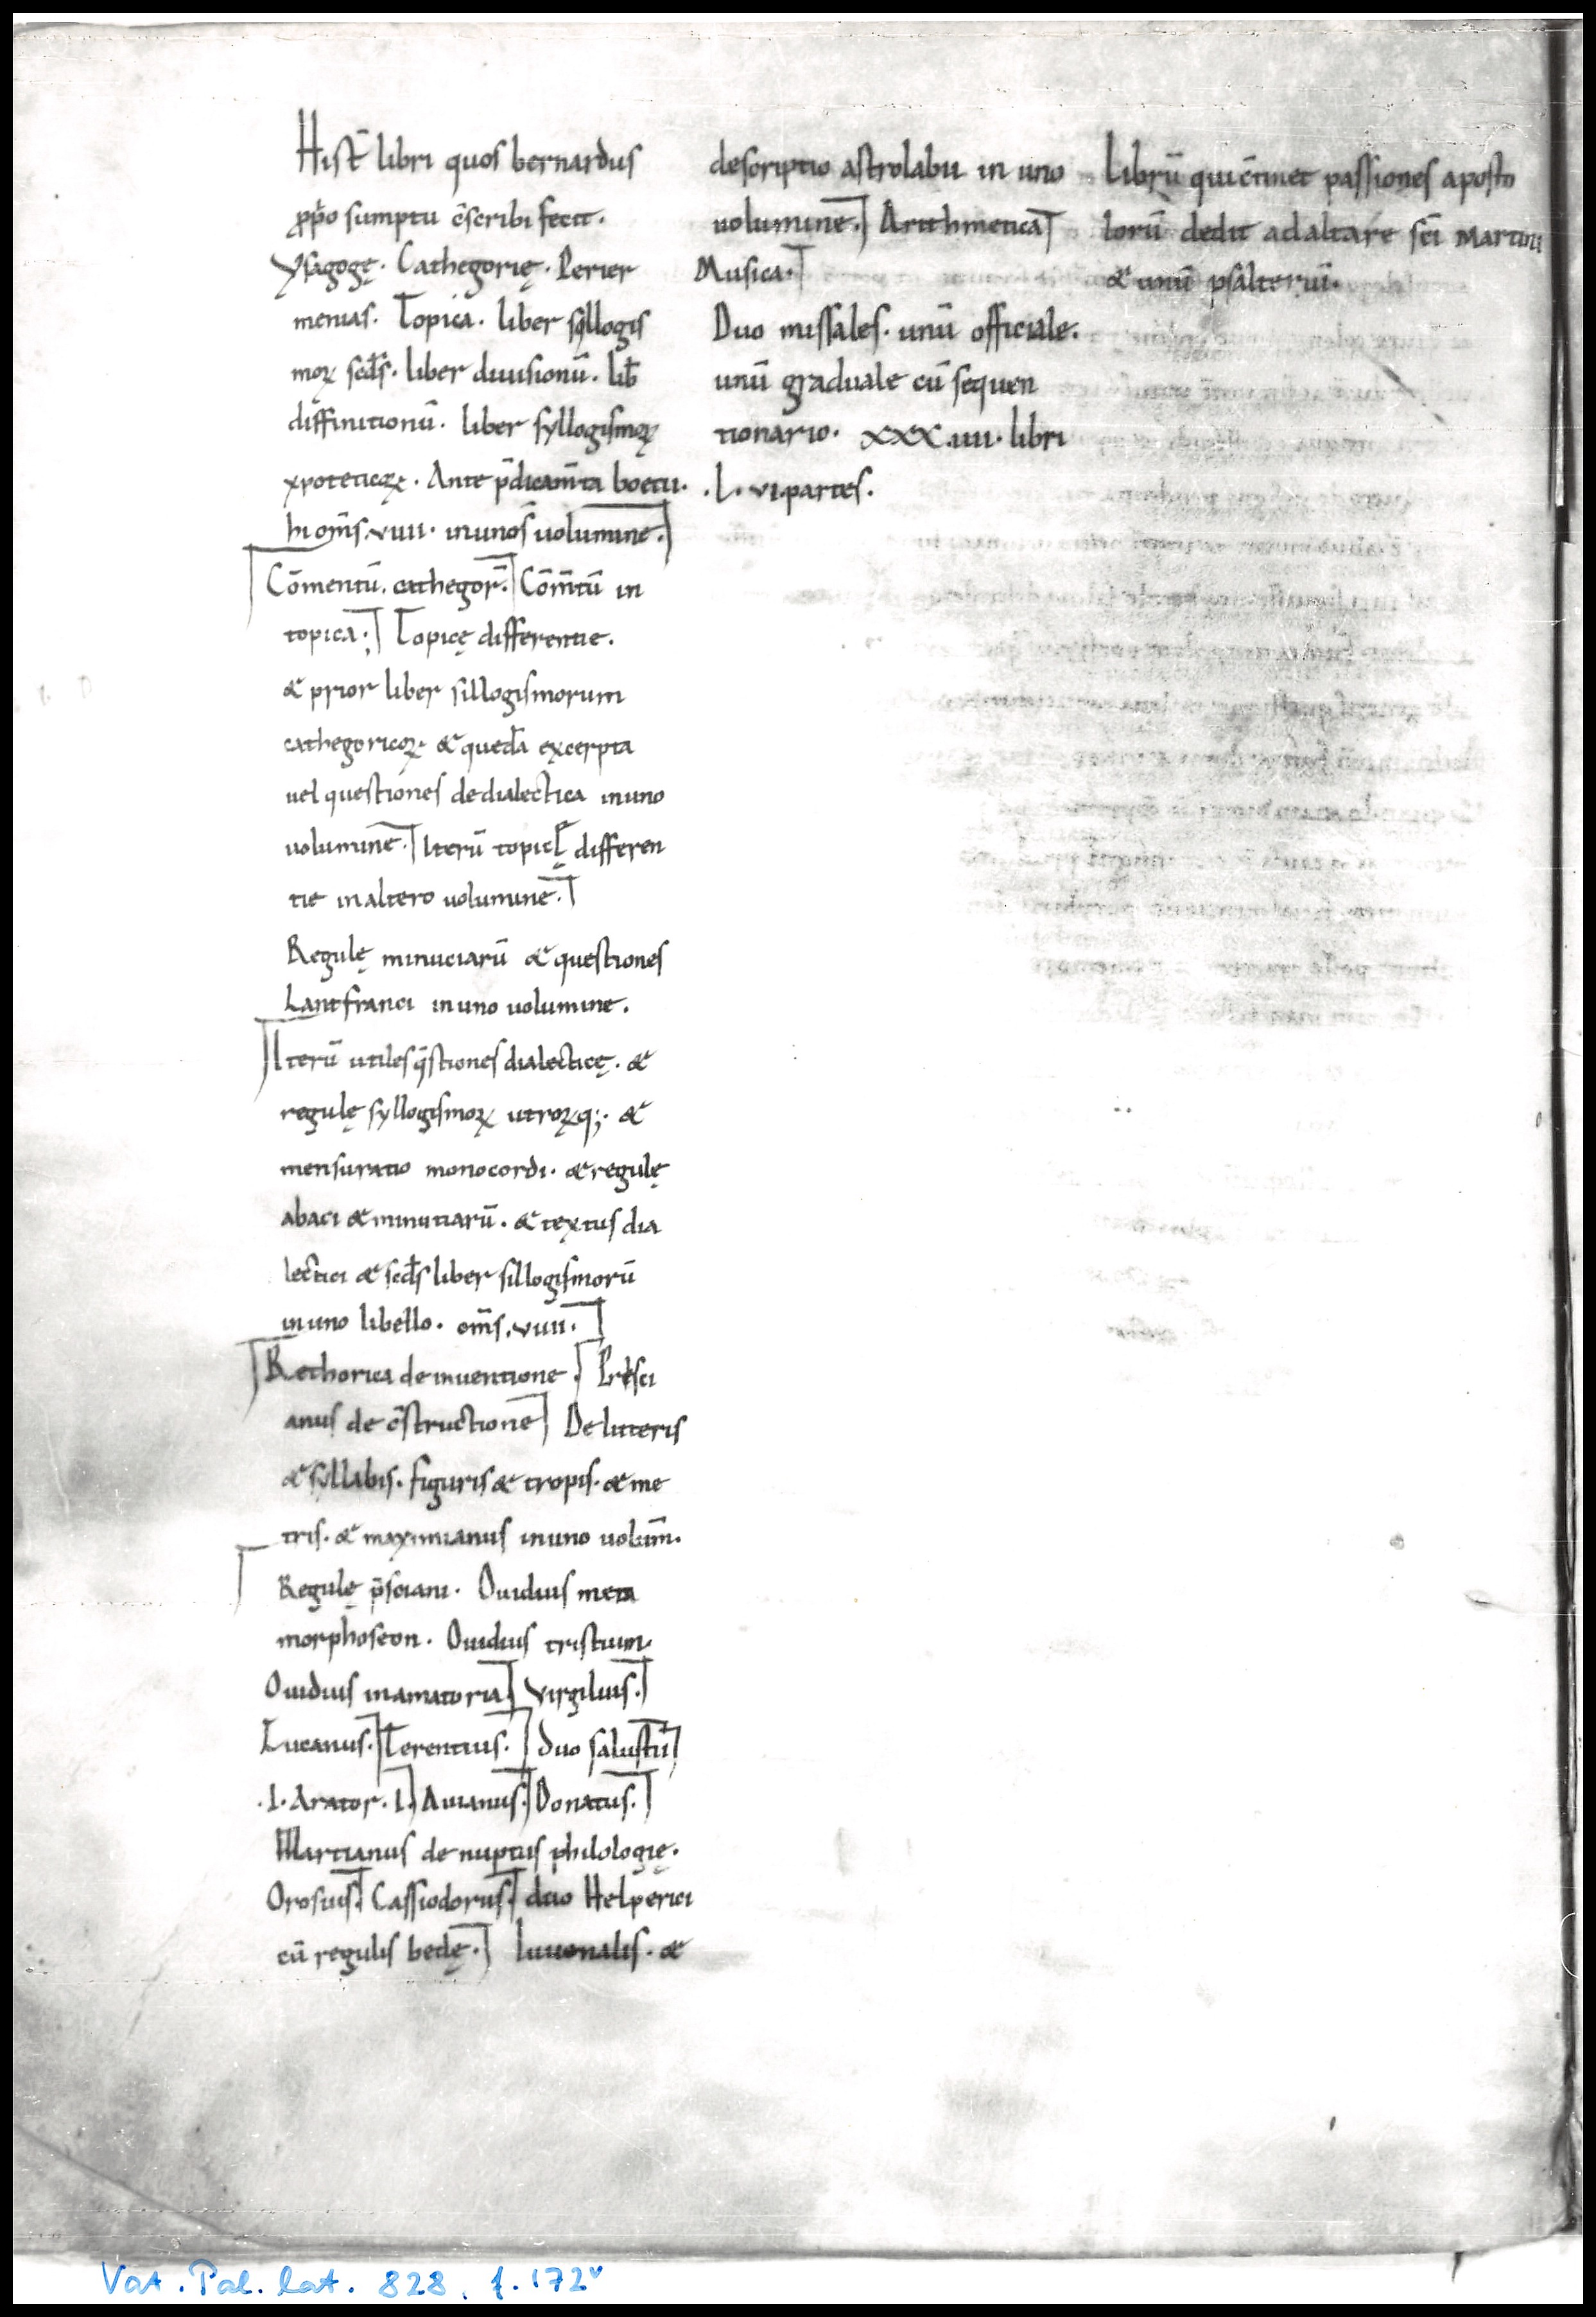 Hi st̄ libri quos bernardus
ꝓp̱o sumptu c̄scribi fecit.
Ysagogę. Cathegorię. Perier
menias. Topica. liber syllogis
moꝝ scd̄s. liber diuisionū. lib̄
diffinitionū. liber syllogismoꝝ
ypoteticoꝝ. Ante p̄dicam̄ta boetii.
hi om̄s. viiii. in uno uolumine.
Cōmentū. cathegor̄. Cōm̄tū in
topica. Topicę differentie.
& prior liber sillogismorum
cathegoricoꝝ. & quedā excerpta
uel questiones de dialectica in uno
uolumine. Iterū topicę differen
tie in altero uolumine.
Regulę minuciarū & questiones
Lantfranci in uno uolumine.
Iterū utiles q̄stiones dialecticę. &
regulę syllogismoꝝ utroꝝq;. &
mensuratio monocordi. & regulę
abaci & minutiarū. & textus dia
lectici & scd̄s liber sillogismorū
in uno libello. om̄s. viiii.
Rethorica de inuentione. Presci
anus de c̄structione De litteris
& syllabis. figuris & tropis. & me
tris. & maximianus in uno uolum̄.
Regulę p̄sciani. Ouidius meta
morphoseon. Ouidius tristium.
Ouidius in amatoria Virgilius.
Lucanus. Terentius. duo salustii
.I. Arator. I. Auianus. Donatus.
Martianus de nuptiis philologię.
Orosius. Cassiodorus. duo Helperici
cū regulis bedę. Iuuenalis. &
descriptio astrolabii in uno
uolumine. Arithmetica
Musica.
Duo missales. unū officiale.
unū graduale cū sequen
tionario. XXX.iiii. libri
.L. vi. partes.
Librū qui c̄tinet passiones aposto
lorū dedit ad altare sc̄i Martini
& unū psalteriū.
Vat. Pal. lat. 828, f. 172v